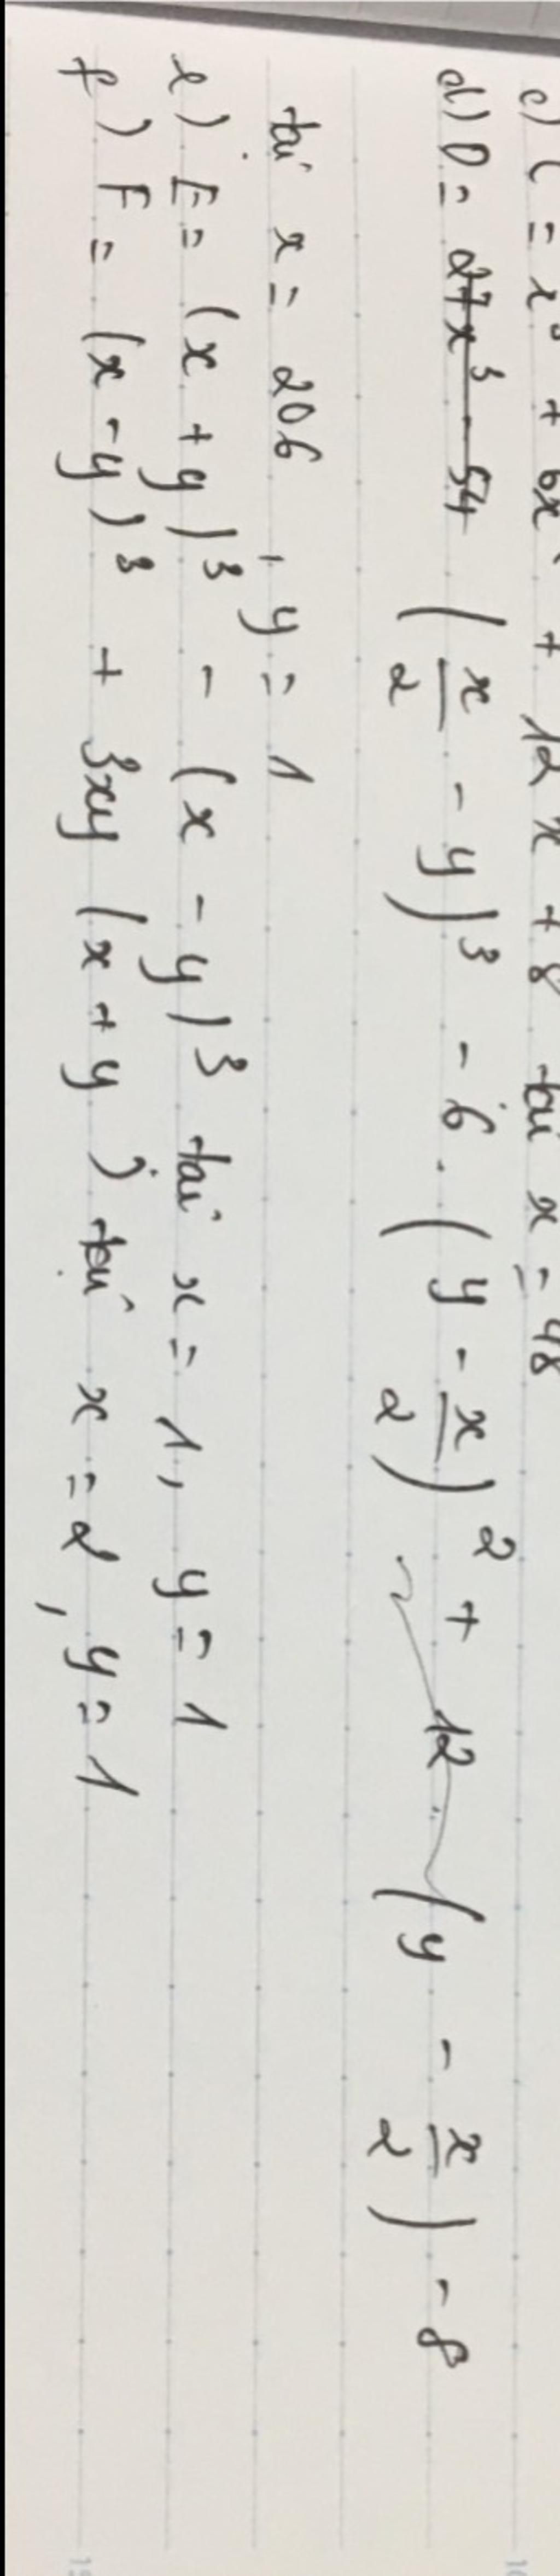 c) C = x³ + 6x² + 12x + 8 tại x = 48
d) D = (x/2 - y)³ - 6.(y - x/2)² + 12 (y - x/2) - 8
tại x = 206, y = 1
e) E = (x + y)³ - (x - y)³ tại x = 1, y = 1
f) F = (x - y)³ + 3xy (x + y) tại x = 2, y = 1